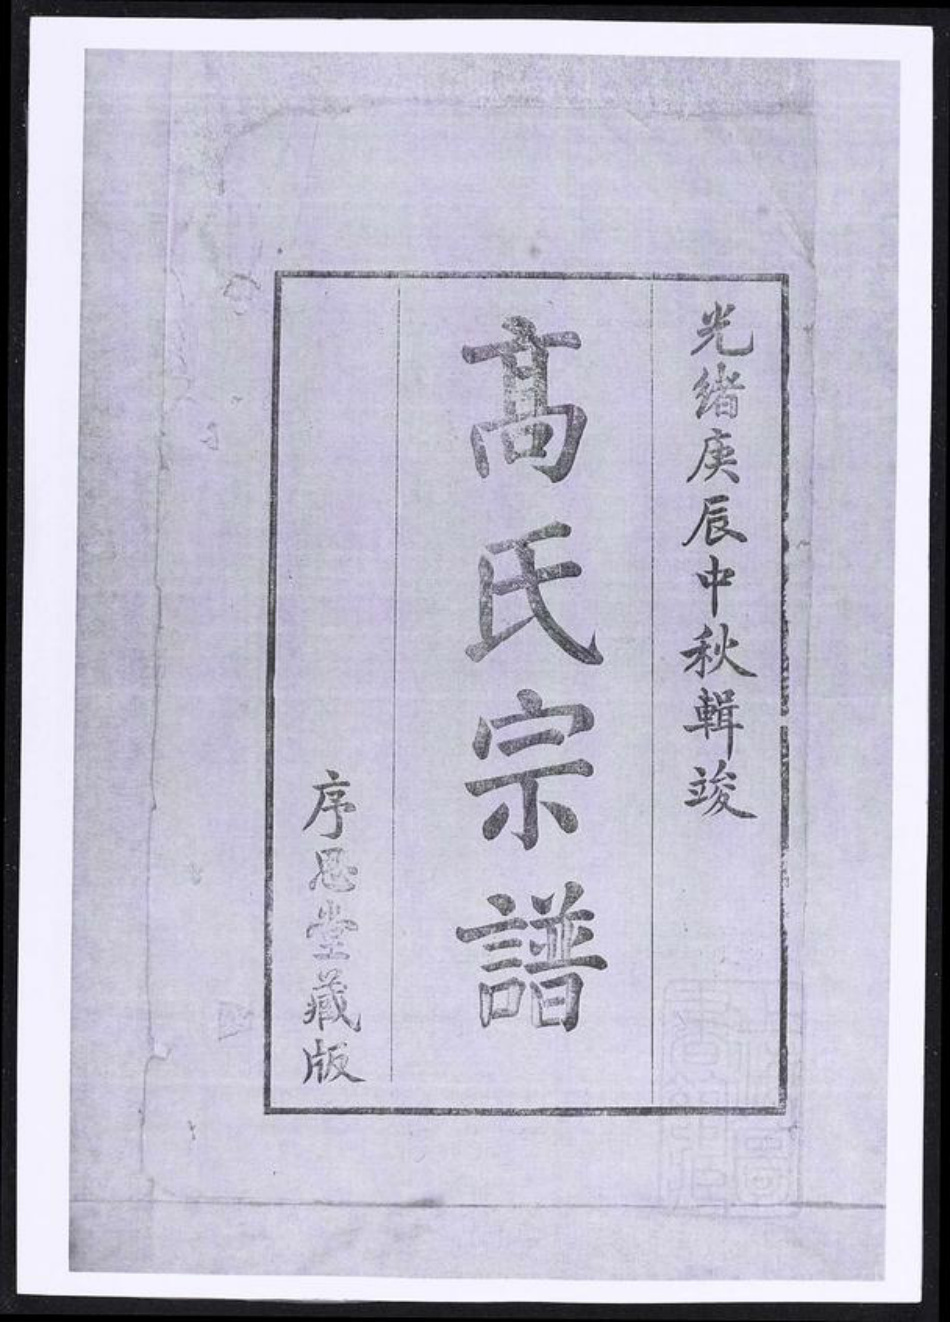 光緒庚辰中秋輯竣
髙氏宗譜
序恩堂藏版